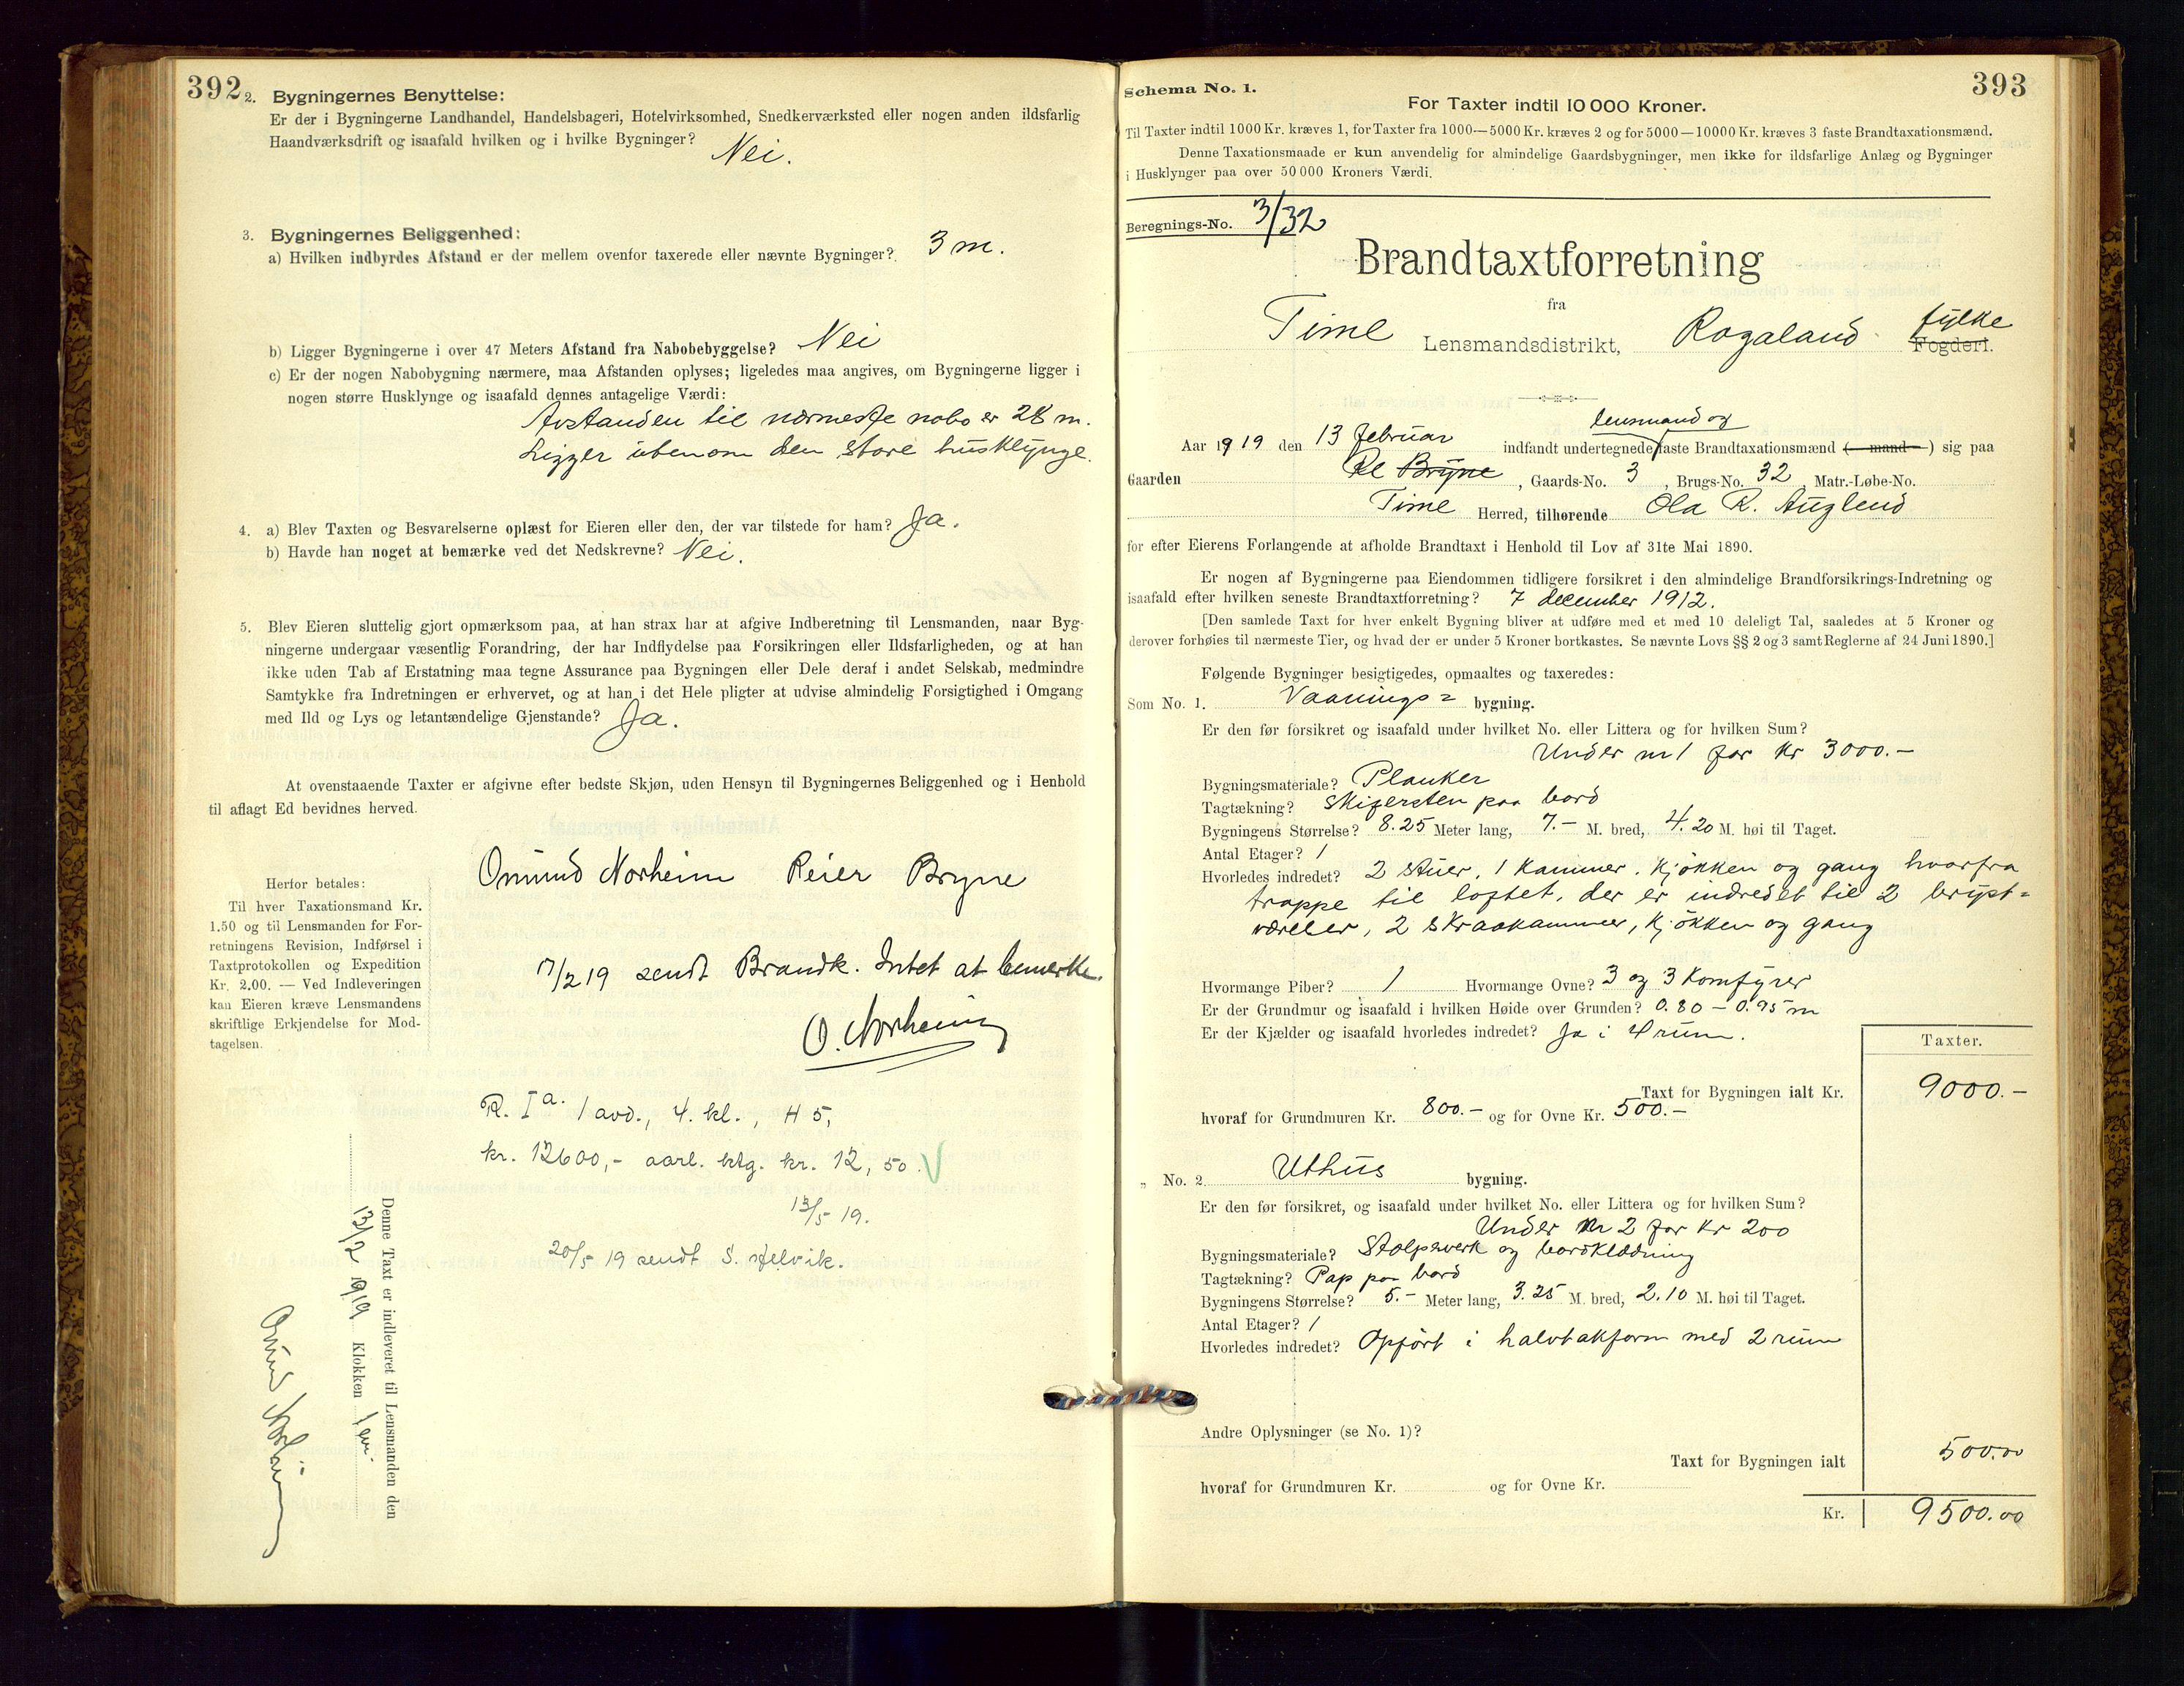 392
2. Bygningernes Benyttelse:
Er der i Bygningerne Landhandel, Handelsbageri, Hotelvirksomhed, Snedkerværksted eller nogen anden ildsfarlig
Haandværksdrift og isaafald hvilken og i hvilke Bygninger? Nei.
3. Bygningernes Beliggenhed:
a) Hvilken indbyrdes Afstand er der mellem ovenfor taxerede eller nævnte Bygninger? 3 m.
b) Ligger Bygningerne i over 47 Meters Afstand fra Nabobebyggelse? Nei
c) Er der nogen Nabobygning nærmere, maa Afstanden oplyses; ligeledes maa angives, om Bygningerne ligger i
nogen større Husklynge og isaafald dennes antagelige Værdi:
Avstanden til nærmeste nabo er 28 m.
Ligger utenom den store husklynge.
4. a) Blev Taxten og Besvarelserne oplæst for Eieren eller den, der var tilstede for ham? Ja.
b) Havde han noget at bemærke ved det Nedskrevne? Nei.
5. Blev Eieren sluttelig gjort opmærksom paa, at han strax har at afgive Indberetning til Lensmanden, naar Byg-
ningerne undergaar væsentlig Forandring, der har Indflydelse paa Forsikringen eller Ildsfarligheden, og at han
ikke uden Tab af Erstatning maa tegne Assurance paa Bygningen eller Dele deraf i andet Selskab, medmindre
Samtykke fra Indretningen er erhvervet, og at han i det Hele pligter at udvise almindelig Forsigtighed i Omgang
med Ild og Lys og letantændelige Gjenstande? Ja.
At ovenstaaende Taxter er afgivne efter bedste Skjøn, uden Hensyn til Bygningernes Beliggenhed og i Henhold
til aflagt Ed bevidnes herved.
Omund Norheim Reier Bryne
Herfor betales:
Til hver Taxationsmand Kr.
1.50 og til Lensmanden for For-
retningens Revision, Indførsel i
Taxtprotokollen og Expedition
Kr. 2.00. — Ved Indleveringen
kan Eieren kræve Lensmandens
skriftlige Erkjendelse for Mod-
tagelsen.
17/2 19 sendt Brandk. Intet at bemerke.
O. Norheim
R. Ia. 1 avd., 4. kl., H 5,
kr. 12600,- aarl. ktg. kr. 12,50. V
13/5 19.
20/5 19 sendt S.
Denne Taxt er indleveret til Lensmanden den
13/2 1919 Klokken 1 em
Omund Norheim
393
Schema No. 1.
For Taxter indtil 10 000 Kroner.
Til Taxter indtil 1000 Kr. kræves 1, for Taxter fra 1000—5000 Kr. kræves 2 og for 5000—10000 Kr. kræves 3 faste Brandtaxationsmænd.
Denne Taxationsmaade er kun anvendelig for almindelige Gaardsbygninger, men ikke for ildsfarlige Anlæg og Bygninger
i Husklynger paa over 50 000 Kroners Værdi.
Beregnings-No. 3/32
Brandtaxtforretning
fra
Time Lensmandsdistrikt, Rogaland fylke Fogderi.
lensmand og
Aar 1919 den 13 februar indfandt undertegnede faste Brandtaxationsmænd (—mand—) sig paa
Gaarden Re Bryne, Gaards-No. 3, Brugs-No. 32, Matr.-Løbe-No.
Time Herred, tilhørende Ola R. Auglend
for efter Eierens Forlangende at afholde Brandtaxt i Henhold til Lov af 31te Mai 1890.
Er nogen af Bygningerne paa Eiendommen tidligere forsikret i den almindelige Brandforsikrings-Indretning og
isaafald efter hvilken seneste Brandtaxtforretning? 7 december 1912.
[Den samlede Taxt for hver enkelt Bygning bliver at udføre med et med 10 deleligt Tal, saaledes at 5 Kroner og
derover forhøies til nærmeste Tier, og hvad der er under 5 Kroner bortkastes. Se nævnte Lovs §§ 2 og 3 samt Reglerne af 24 Juni 1890.]
Følgende Bygninger besigtigedes, opmaaltes og taxeredes:
Som No. 1. Vaanings= bygning.
Er den før forsikret og isaafald under hvilket No. eller Littera og for hvilken Sum?
Under nr 1 for kr 3000.-
Bygningsmateriale? Planker
Tagtækning? Skifersten paa bord
Bygningens Størrelse? 8.25 Meter lang, 7.- M. bred, 4.20 M. høi til Taget.
Antal Etager? 1
Hvorledes indredet? 2 stuer, 1 kammer, kjøkken og gang hvorfra
trappe til loftet, der er indredet til 2 bryst=
værelser, 2 skraakammer, kjøkken og gang
Hvormange Piber? 1 Hvormange Ovne? 3 og 3 komfyrer
Er der Grundmur og isaafald i hvilken Høide over Grunden? 0.80 - 0.95 m
Er der Kjælder og isaafald hvorledes indredet? Ja i 4 rum.
Taxter.
Taxt for Bygningen ialt Kr. 9000.-
hvoraf for Grundmuren Kr. 800.- og for Ovne Kr. 500.-
„ No. 2. Uthus bygning.
Er den før forsikret, og isaafald under hvilket No. eller Littera og for hvilken Sum?
Under nr 2 for kr 200
Bygningsmateriale? Stolpeverk og bordklædning
Tagtækning? Pap paa bord
Bygningens Størrelse? 5.- Meter lang, 3.25 M. bred, 2.10 M. høi til Taget.
Antal Etager? 1
Hvorledes indredet? Opført i halvtakform med 2 rum
Andre Oplysninger (se No. 1)?
Taxt for Bygningen ialt 500.00
hvoraf for Grundmuren Kr. og for Ovne Kr.
Kr. 9500.00